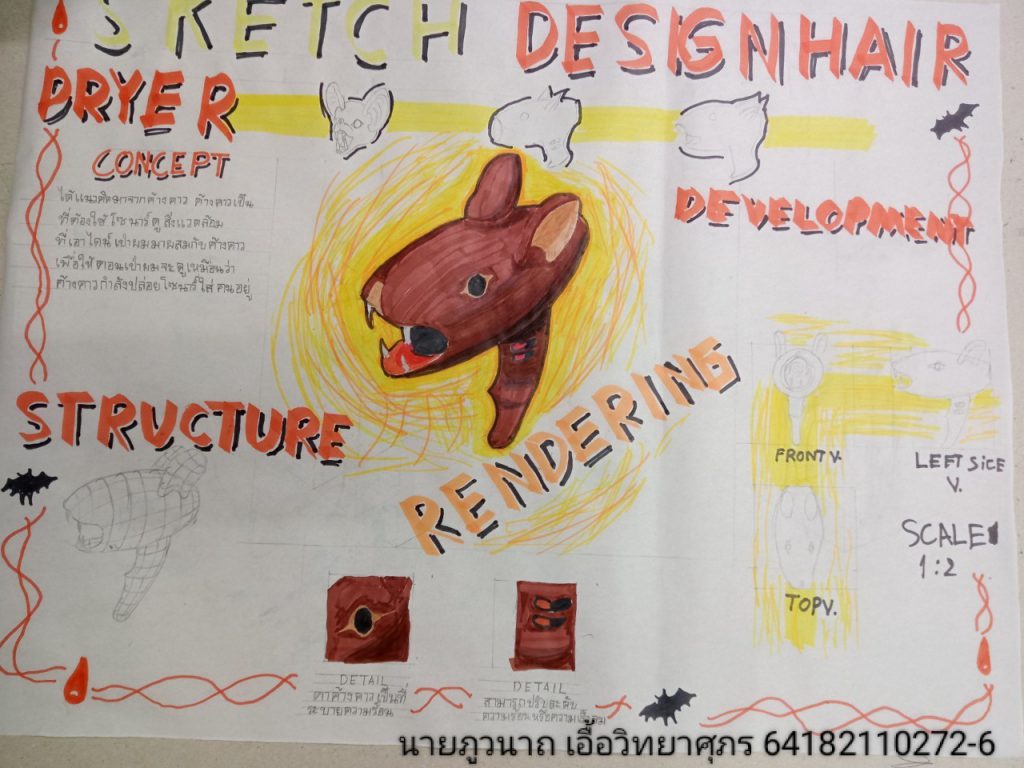 SKETCH DESIGNHAIR
DRYER
CONCEPT
ได้แนวคิดมาจากค้างคาว ค้างคาวเป็น
ที่ต้องใช้ โซนาร์ ดู สิ่งแวดล้อม
ที่เอาไดน์เป่าผมมาผสมกับค้างคาว
เพื่อให้ตอนเป่าผมจะดูเหมือนว่า
ค้างคาวกำลังปล่อยโซนาร์ใส่ คนอยู่
DEVELOPMENT
STRUCTURE
RENDERING
FRONT V.
LEFT SiCE
V.
SCALE
1:2
TOPV.
DETAIL
ตาค้างคาวเป็นที่
ระบายความร้อน
DETAIL
สามารถปรับระดับ
ความร้อนหรือความเย็น
นายภูวนาถ เอื้อวิทยาศุภร 64182110272-6